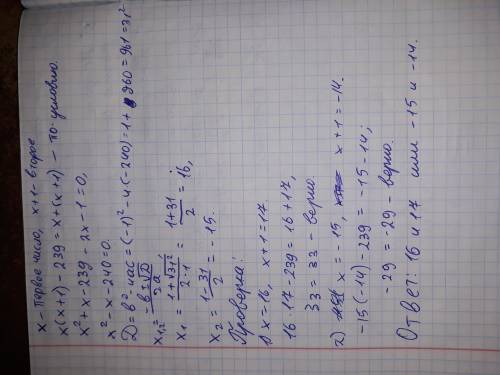 x - первое число, x+1 - второе
x(x+1) - 239 = x+(x+1) - по условию.
x²+x-239-2x-1=0,
x²-x-240=0.
D=в²-4ac=(-1)²-4(-240)=1+960=961=31²
x₁,₂ = (-в±√D)/2a
x₁ = (1+√31²)/(2·1) = (1+31)/2 = 16,
x₂ = (1-31)/2 = -15.
Проверка:
1) x=16, x+1=17
16·17-239=16+17,
33=33 - верно.
2) x=-15, x+1=-14.
-15(-14)-239=-15-14;
-29=-29 - верно.
Ответ: 16 и 17 или -15 и -14.